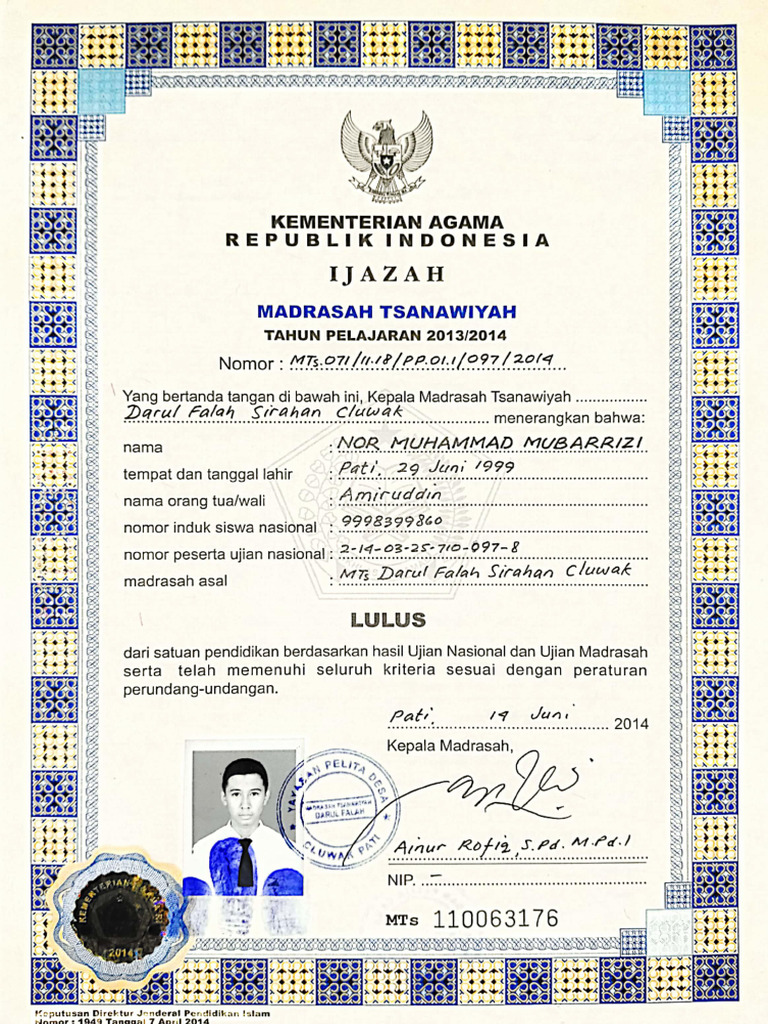 KEMENTERIAN AGAMA
REPUBLIK INDONESIA
IJAZAH
MADRASAH TSANAWIYAH
TAHUN PELAJARAN 2013/2014
Nomor : MTs.071/11.18/PP.01.1/097/2014
Yang bertanda tangan di bawah ini, Kepala Madrasah Tsanawiyah ................
Darul Falah Sirahan Cluwak menerangkan bahwa:
nama : NOR MUHAMMAD MUBARRIZI
tempat dan tanggal lahir : Pati, 29 Juni 1999
nama orang tua/wali : Amiruddin
nomor induk siswa nasional : 9998399860
nomor peserta ujian nasional : 2-14-03-25-710-097-8
madrasah asal : MTs Darul Falah Sirahan Cluwak
LULUS
dari satuan pendidikan berdasarkan hasil Ujian Nasional dan Ujian Madrasah
serta telah memenuhi seluruh kriteria sesuai dengan peraturan
perundang-undangan.
Pati, 14 Juni 2014
Kepala Madrasah,
YAYASAN PELITA DESA
MADRASAH TSANAWIYAH
DARUL FALAH
CLUWAK PATI
Ainur Rofiq, S.Pd. M.Pd.I
NIP. –
MTs 110063176
KEMENTERIAN
2014
Keputusan Direktur Jenderal Pendidikan Islam
Nomor : 1949 Tanggal 7 April 2014